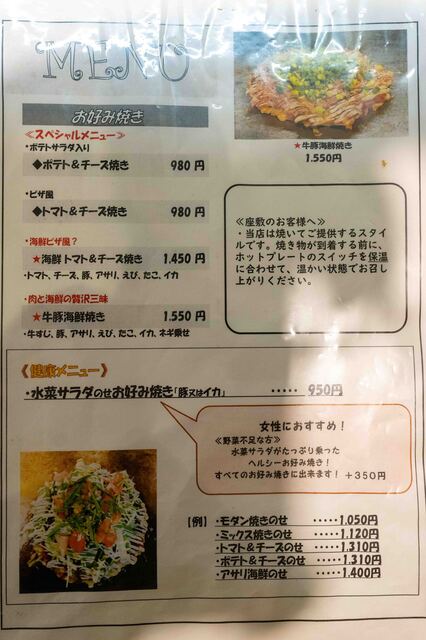 MENU
お好み焼き
≪スペシャルメニュー≫
・ポテトサラダ入り
◆ポテト＆チーズ焼き 980 円
・ピザ風
◆トマト＆チーズ焼き 980 円
・海鮮ピザ風？
★海鮮 トマト＆チーズ焼き 1,450 円
・トマト、チーズ、豚、アサリ、えび、たこ、イカ
・肉と海鮮の贅沢三昧
★牛豚海鮮焼き 1,550 円
・牛すじ、豚、アサリ、えび、たこ、イカ、ネギ乗せ
★牛豚海鮮焼き
1,550円
≪座敷のお客様へ≫
・当店は焼いてご提供するスタイ
ルです。焼き物が到着する前に、
ホットプレートのスイッチを保温
に合わせて、温かい状態でお召し
上がりください。
《健康メニュー》
・水菜サラダのせお好み焼き「豚又はイカ」 ・・・・・ 950円
女性におすすめ！
≪野菜不足な方≫
水菜サラダがたっぷり乗った
ヘルシーお好み焼き！
すべてのお好み焼きに出来ます！ ＋350円
【例】 ・モダン焼きのせ ・・・・・1,050円
・ミックス焼きのせ ・・・・1,120円
・トマト＆チーズのせ ・・・・1,310円
・ポテト＆チーズのせ ・・・・1,310円
・アサリ海鮮のせ ・・・・1,400円